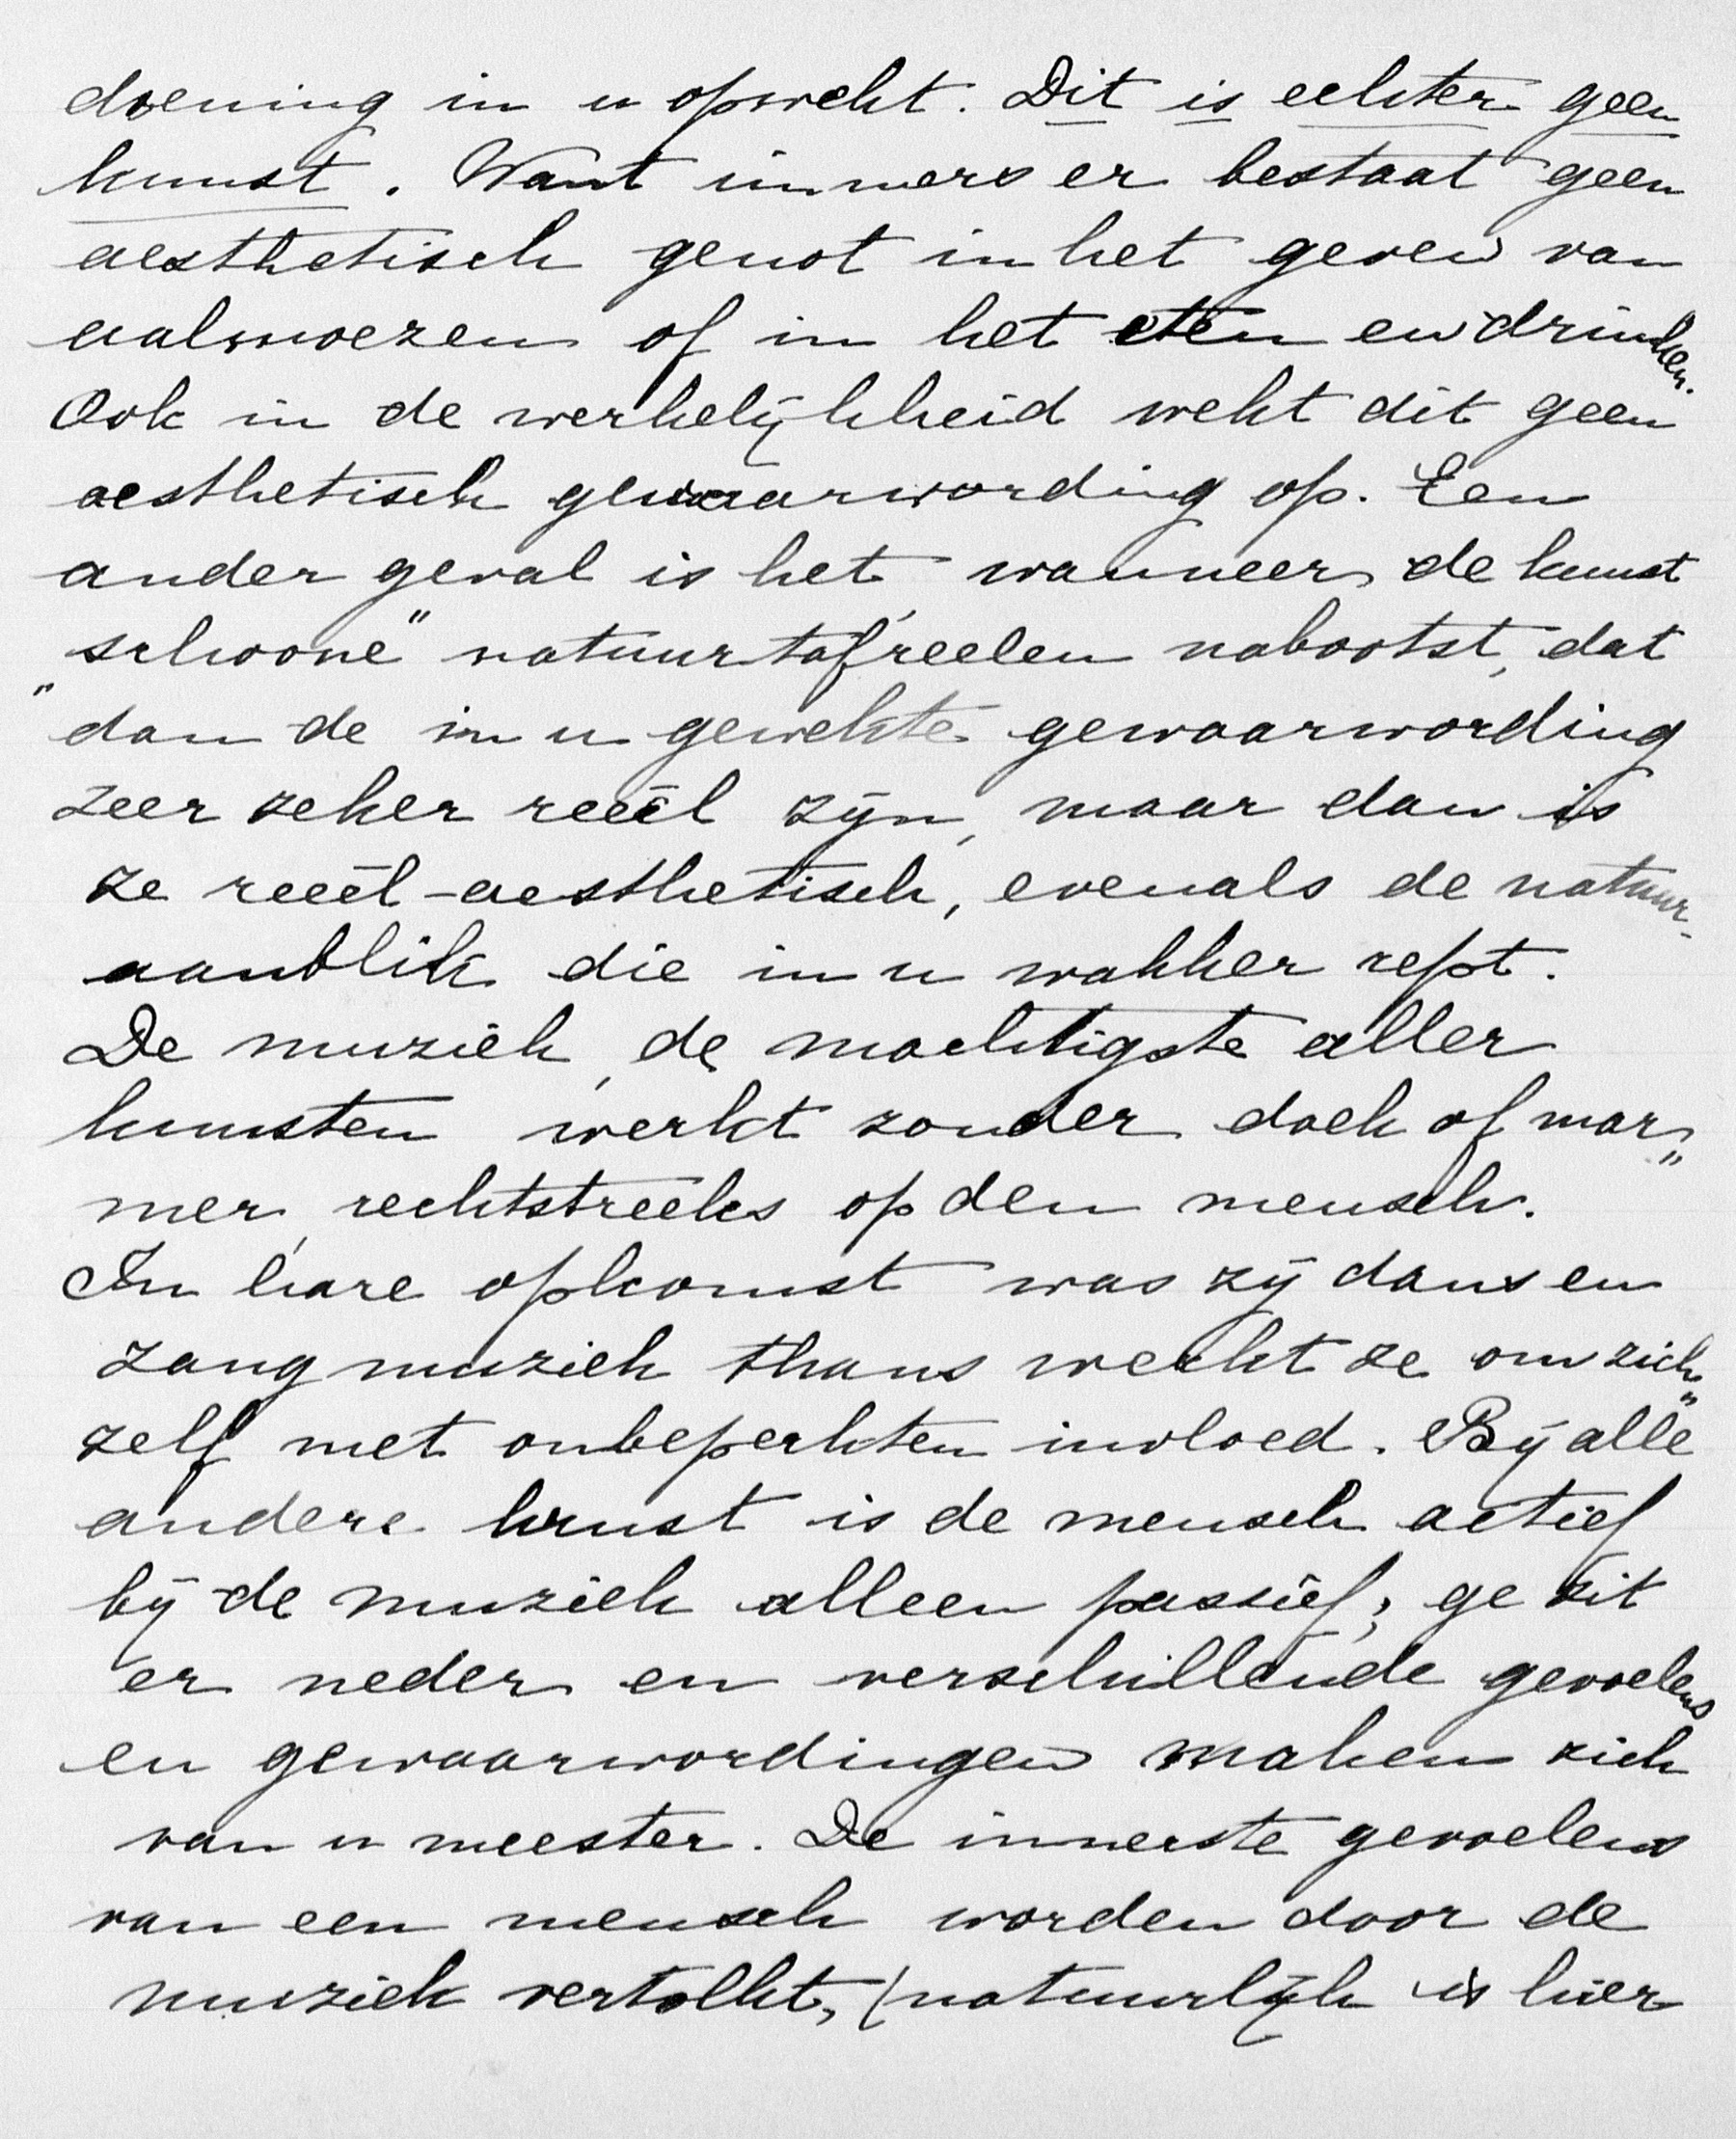 doening in u opwekt. Dit is echter geen
kunst. Want immers er bestaat geen
aesthetisch genot in het geven van
aalmoezen of in het eten en drinken.
Ook in de werkelijkheid wekt dit geen
aesthetisch gewaarwording op. Een
ander geval is het wanneer de kunst
"schoone" natuurtafreelen nabootst, dat
dan de in u gewekte gewaarwording
zeer zeker reëel zijn, maar dan is
ze reeël-aesthetisch, evenals de natuur-
aanblik die in u wakker rept.
De muziek, de machtigste aller
kunsten werkt zonder doek of mar„
mer, rechtstreeks op den mensch.
In hare opkomst was zij dans en
zangmuziek thans werkt ze om zich„
zelf met onbeperkten invloed. Bij alle
andere kunst is de mensch actief
bij de muziek alleen passief; ge zit
er neder en verschillende gevoelens
en gewaarwordingen maken zich
van u meester. De innerste gevoelens
van een mensch worden door de
muziek vertolkt, (natuurlijk is hier